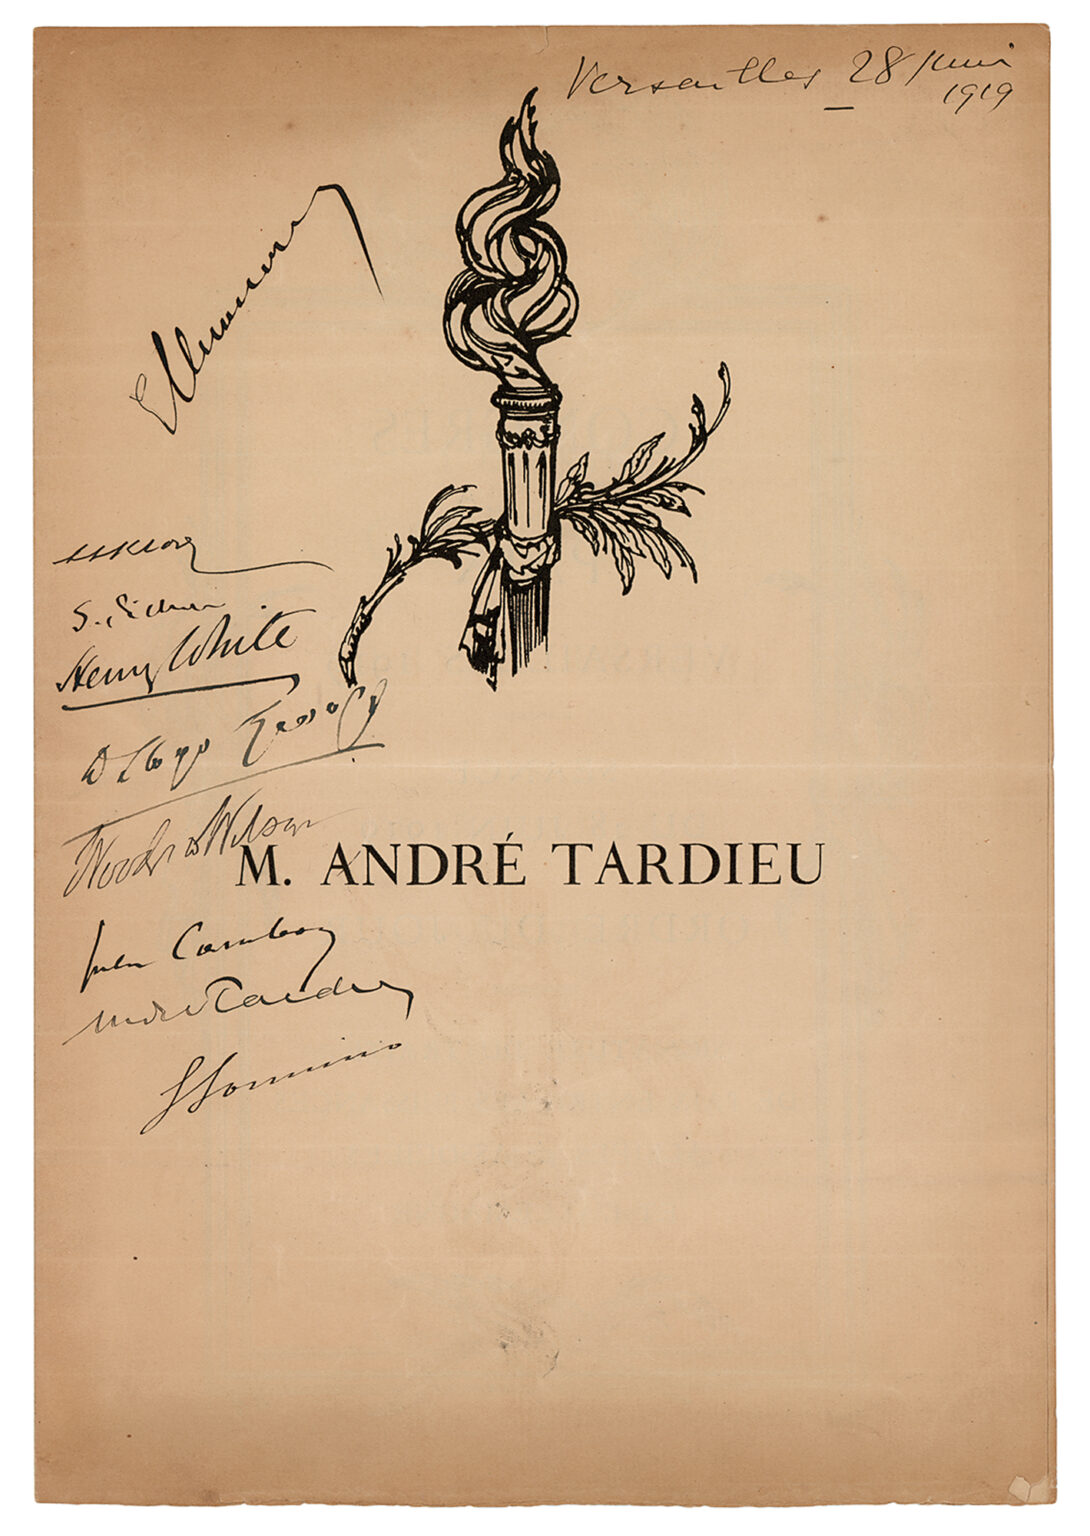 Versailles 28 juin
1919
GClemenceau
S. Pichon
Henry White
D Lloyd George
Woodrow Wilson
M. ANDRÉ TARDIEU
Jules Cambon
André Tardieu
SSonnino